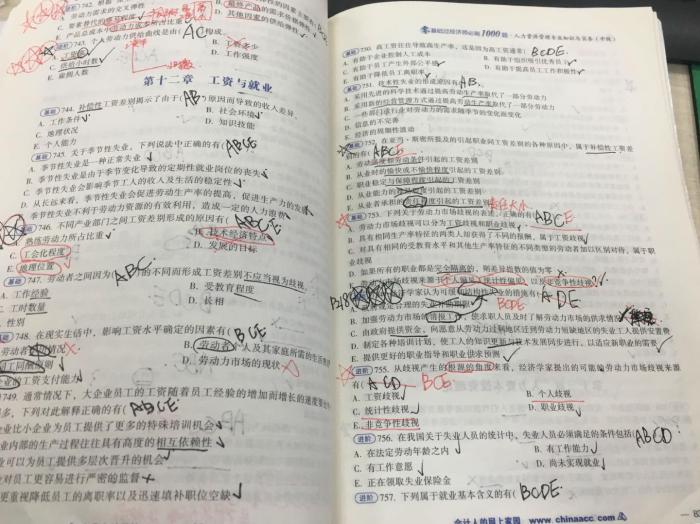 劳动力需求的交叉弹性
D. 其他因素的供给弹性
E. 产品总成本中劳动力成本所占的比重
743. 个人劳动力供给曲线是由( AC )构成
B. 工资多少
D. 工作强度
E. 雇佣人数
第十二章 工资与就业
基础 744. 补偿性工资差别揭示了由于( AB )原因而导致的收入差异。
A. 工作条件
B. 社会环境
C. 地理状况
D. 知识技能
E. 个人能力
基础 745. 关于季节性失业，下列说法中正确的有( ABCE
A. 季节性失业是一种正常失业
B. 季节性失业是由于季节变化导致的定期性就业岗位的丧失
C. 季节性失业会影响季节工人的收入及生活的稳定性
D. 从长远来看，季节性失业会促进劳动生产率的提高，促进生产力的发展
季节性失业不利于劳动力资源的有效利用，造成一定的人力浪费
746. 不同产业部门之间工资差别形成的原因有( ABCE
A. 熟练劳动力所占比重
B. 技术经济特点
C. 工会化程度
D. 发展的目标
E. 地理位置
基础 747. 劳动者之间因为( ABC )的不同而形成工资差别不应当视为歧视
A. 工作经验
B. 受教育程度
C. 工时数量
D. 长相
性别
748. 在现实生活中，影响工资水平确定的因素有( BCE
B. 劳动者个人及其家庭所需的生活费用
同工同酬原则
D. 劳动力市场的现状
业的工资支付能力
749. 通常情况下，大企业员工的工资随着员工经验的增加而增长的速度
多，下列对此解释正确的有( ABCE
业比小企业为员工提供了更多的特殊培训机会
业内部的生产过程往往具有高度的相互依赖性
业可以为员工提供多层次晋升的机会
业对员工更容易进行严密的监督
更重视降低员工的离职率以及迅速填补职位空缺
零基础过经济师必刷1000题·人力资源管理专业知识与实务(中级)
基础 750. 高工资往往导致高生产率，这是因为高工资通常( BCDE.
A. 有助于企业控制人工成本
B. 有助于组织吸引优秀员工
C. 有助于员工产生外部公平感
D. 有助于提高员工工作积极性
E. 有助于降低员工离职率
基础 751. 技术性失业的形成原因有( AB.
A. 采用先进的科学技术通过提高劳动生产率取代了一部分劳动力
B. 采用新的经营管理方式通过提高劳动生产率取代了一部分劳动力
C. 一些部门或行业对劳动力的需求随季节的变化而变化
D. 信息的不完善
E. 经济的周期性波动
基础 752. 在亚当·斯密所提及的引起职业间工资差别的各种原因中，属于补偿性工资差别的有( ABCE
A. 劳动强度和劳动条件引起的工资差别
B. 从业时的愉快或不愉快程度引起的工资差别
C. 职业稳定与保障程度引起的工资差别
E. 从业者承担的责任程度引起的工资差别
责任大小
基础 753. 下列关于劳动力市场歧视的表述，正确的有( ABCE
A. 劳动力市场歧视可以分为工资歧视和职业歧视
B. 具有相同生产率特征的两类人却获得了不同的报酬，属于工资歧视
C. 对具有相同的受教育水平和其他生产率特征的不同类型的劳动者加以区别对待，属于职业歧视
D. 如果所有的职业都是完全隔离的，则差异指数的值为零
A. 政府规定合理的失业补助期限
B. 加强劳动力市场的情报工作，使求职人员及时了解劳动力市场的供求情况
C. 由政府提供资金，向愿意从劳动力过剩地区迁到劳动力短缺地区的失业工人提供安置费
D. 制定各种培训计划，使工人的知识更新与技术发展同步进行，以适应新职业的需要
E. 提供更好的职业指导和职业供求预测
进阶 755. 从歧视产生的根源的角度来看，经济学家提出的可能的劳动力市场歧视来源有( ACD BCE
A. 工资歧视
B. 个人歧视
C. 统计性歧视
D. 职业歧视
E. 非竞争性歧视
进阶 756. 在我国关于失业人员的统计中，失业人员必须满足的条件包括( ABCD
A. 在法定劳动年龄之内
B. 有工作能力
C. 有工作意愿
D. 尚未实现就业
E. 正在领取失业保险金
进阶 757. 下列属于就业基本含义的有( BCDE.
会计人的网上家园 www.chinaacc.com